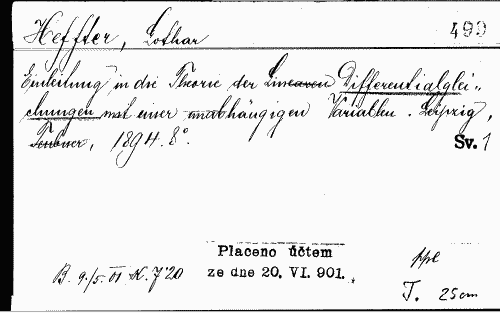 Heffter, Lothar 490
Einleitung in die Theorie der Linearen Differentialglei-
chungen mit einer unabhängigen Variablen. Leipzig,
Teubner, 1894. 8°.
Sv. 1
Placeno účtem
ze dne 20. VI. 901.
B. 9./5. 01 K. 7 20
ppl
T. 25 cm